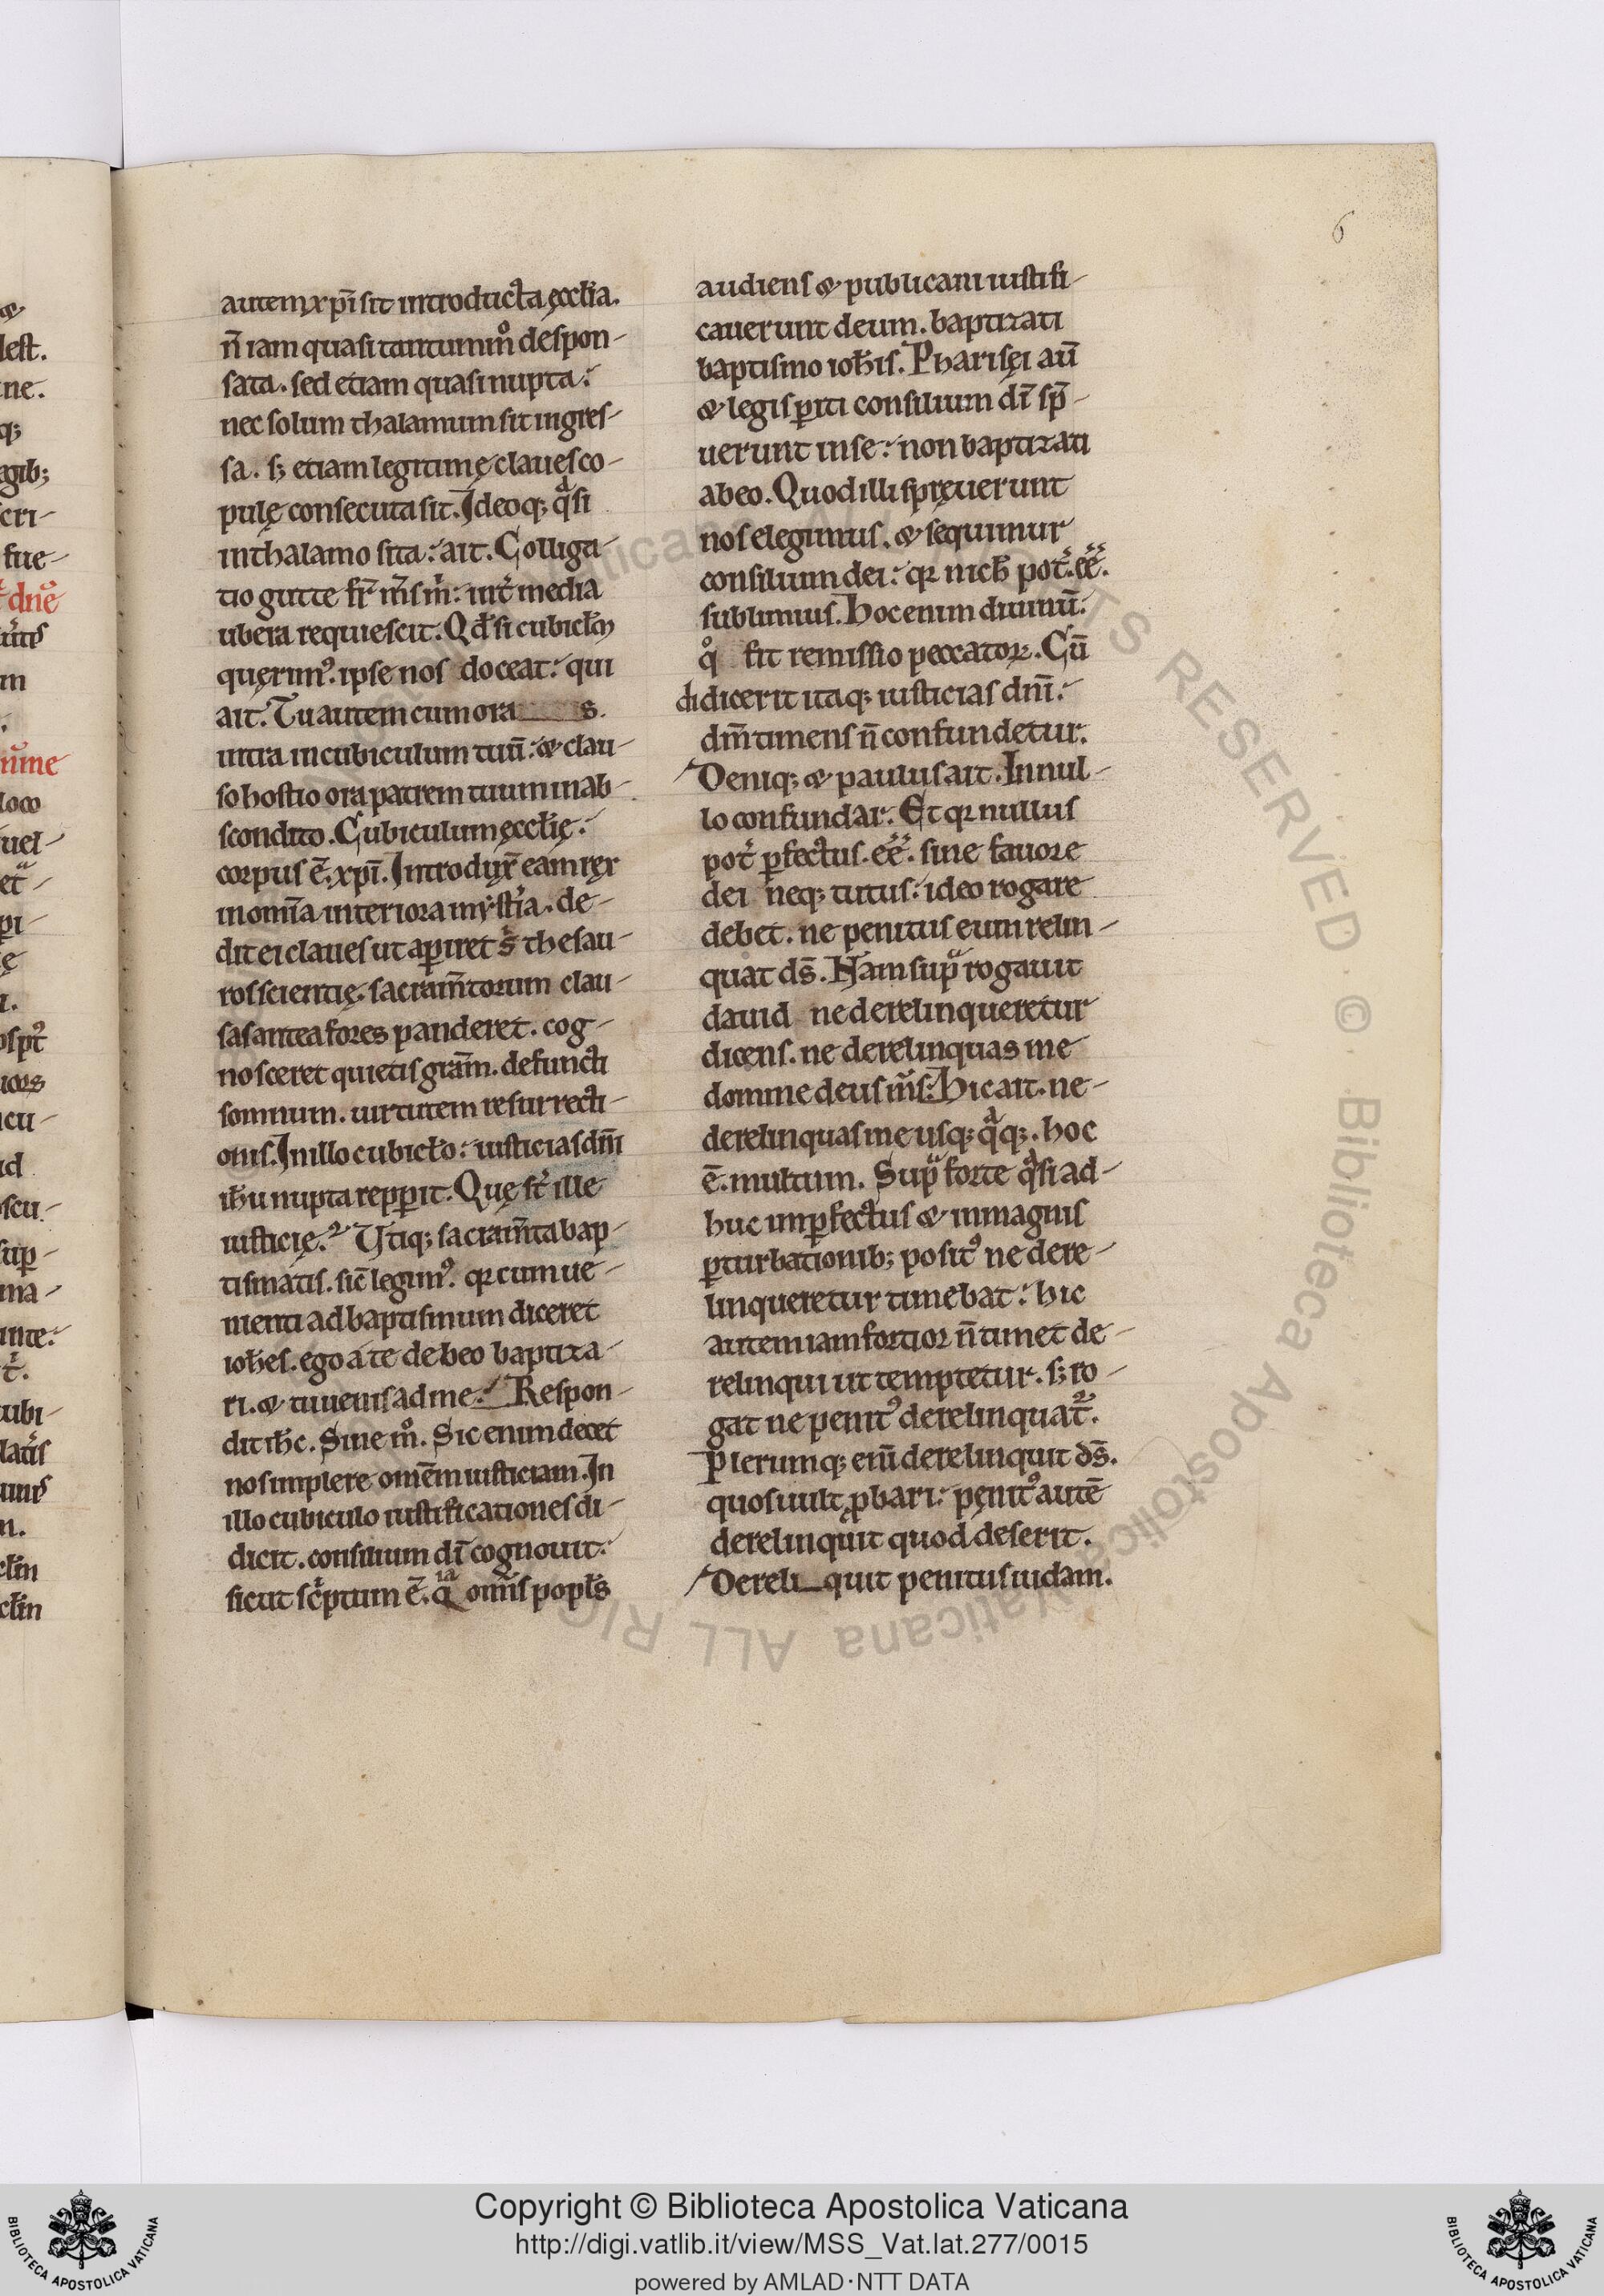 6
autem xp̄i sit introducta ęcclīa.
n̄ iam quasi tantummͦ despon-
sata. sed etiam quasi nupta:
nec solum thalamum sit ingres-
sa. sꝫ etiam legitimę claues co-
pulę consecuta sit. Ideoqꝫ qͣsi
in thalamo sita: ait. Colliga-
tio gutte fr̄ m̄s m̓: int̓ media
ubera requiescit. Qđ si cubicłm
querimꝰ. ipse nos doceat: qui
ait. Tu autem cum ora s.
intra in cubiculum tuū: & clau-
so hostio ora patrem tuum in ab-
scondito. Cubiculum ęcclīę:
corpus ē. xp̄i. Introdux̄ eam rex
in om̄ia interiora mẏst̓ia. de-
dit ei claues ut aꝑiret s̓ thesau-
ros scientię. sacram̄torum clau-
sas antea fores panderet. cog-
nosceret quietis grām. defuncti
somnum. uirtutem resurrecti-
onis. In illo cubicło: iusticias dn̄i
ih̄u nupta reꝑpit. Quę st̓ ille
iusticię? Utiqꝫ sacram̄ta bap-
tismatis. sic̄ legimꝰ. qꝛ cum ue-
nienti ad baptismum diceret
ioh̄es. ego a te debeo baptiza-
ri. & tu uenis ad me: Respon-
dit ih̄c. Sine mͦ. Sic enim decet
nos implere omēm iusticiam. In
illo cubiculo iustificationes di-
dicit. consilium dī cognouit:
sicut sc̓ptum ē. qia om̄is popłs
audiens & publicani iustifi-
cauerunt deum. baptizati
baptismo ioh̄is. Pharisęi aū
& legisꝑiti consilium dī sp̄-
uerunt in se: non baptizati
ab eo. Quod illi spręuerunt
nos elegimus. & sequimur
consilium dei: qꝛ nich̄ pot̓. eē̓.
sublimius. Hoc enim diuinū:
qͦ fit remissio peccatoꝝ. Cū
didicerit itaqꝫ iusticias dn̄i:
dn̄m timens n̄ confundetur.
Deniqꝫ & paulus ait. In nul-
lo confundar. Et qꝛ nullus
pot̓ ꝑfectus. eē̓. sine fauore
dei neqꝫ tutus: ideo rogare
debet. ne penitus eum relin-
quat ds̄. Nam supͣ rogauit
dauid ne derelinqueretur
dicens. ne derelinquas me
domine deus m̄s: Hic ait. ne-
derelinquas me usqꝫ qͣqꝫ. hoc
ē. multum. Supͣ forte qͣsi ad-
huc imꝑfectus & in magnis
ꝑturbationibꝫ positꝰ ne dere-
linqueretur timebat: hic
autem iam fortior n̄ timet de-
relinqui ut temptetur. sꝫ ro-
gat ne penitꝰ derelinquat̓.
Plerumqꝫ enī derelinquit ds̄.
quos uult ꝓbari: pęnitꝰ autē
derelinquit quod deserit.
Dereli_quit penitus iudam.
Copyright © Biblioteca Apostolica Vaticana
http://digi.vatlib.it/view/MSS_Vat.lat.277/0015
powered by AMLAD·NTT DATA